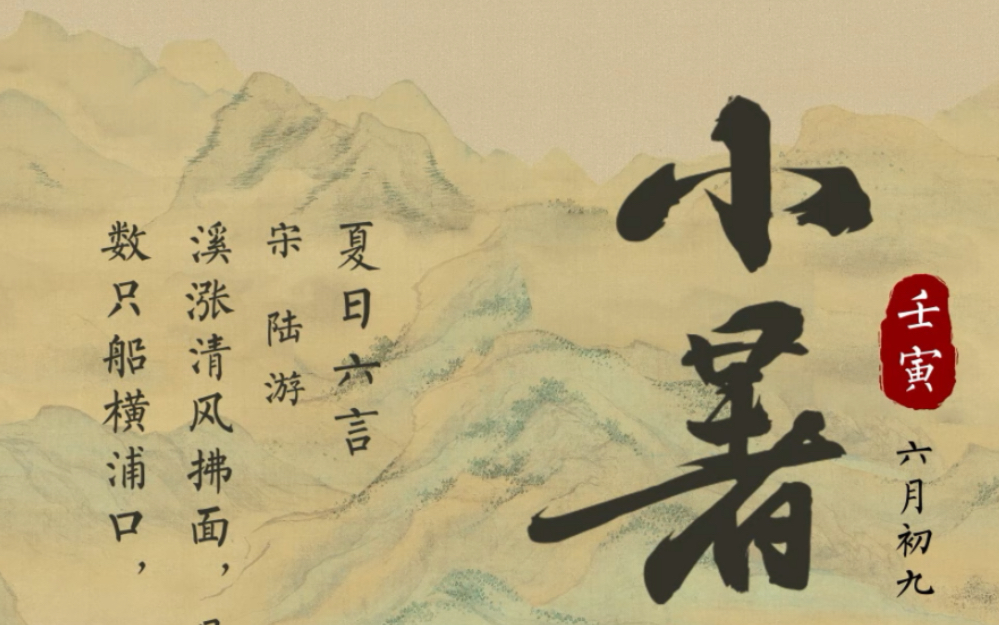 小暑
壬寅
六月初九
夏日六言
宋 陆游
溪涨清风拂面，
数只船横浦口，